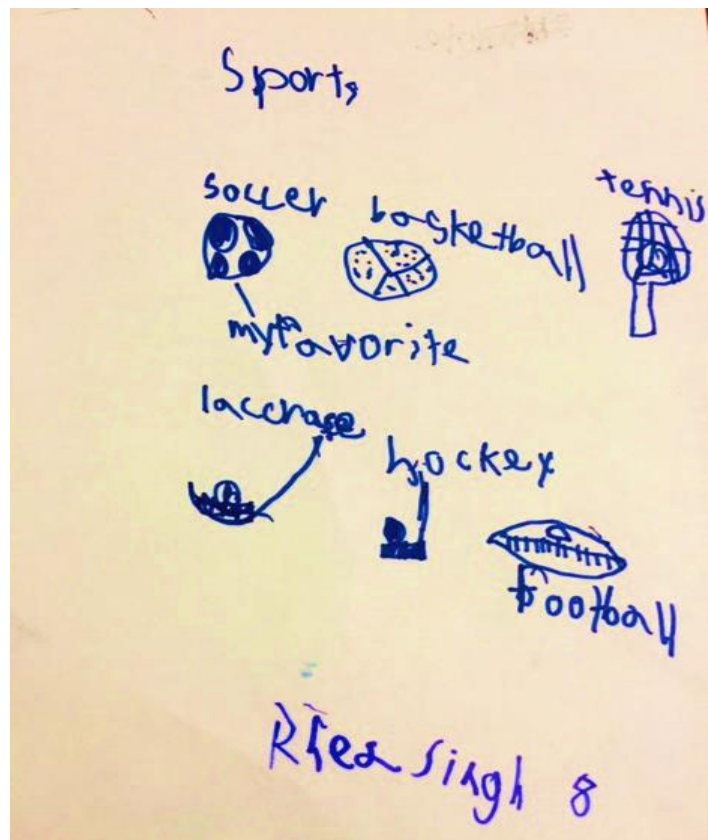 Sports
soccer basketball tennis
my favorite
laccrose hockey
football
Rhea Singh 8